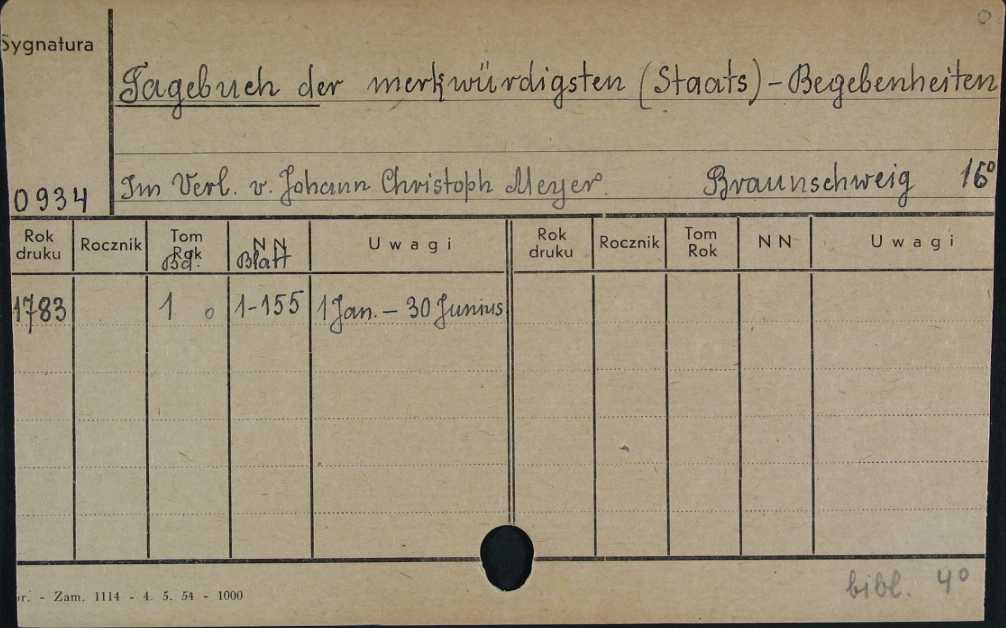 0
Sygnatura
Tagebuch der merkwürdigsten (Staats)-Begebenheiten
0934 Im Verl. v. Johann Christoph Meyer. Braunschweig 16°
Rok druku Rocznik Tom Rok Bd. NN Blatt Uwagi Rok druku Rocznik Tom Rok NN Uwagi
1783 1 o 1-155 1 Jan. – 30 Junius
bibl. 4°
r. - Zam. 1114 - 4. 5. 54 - 1000